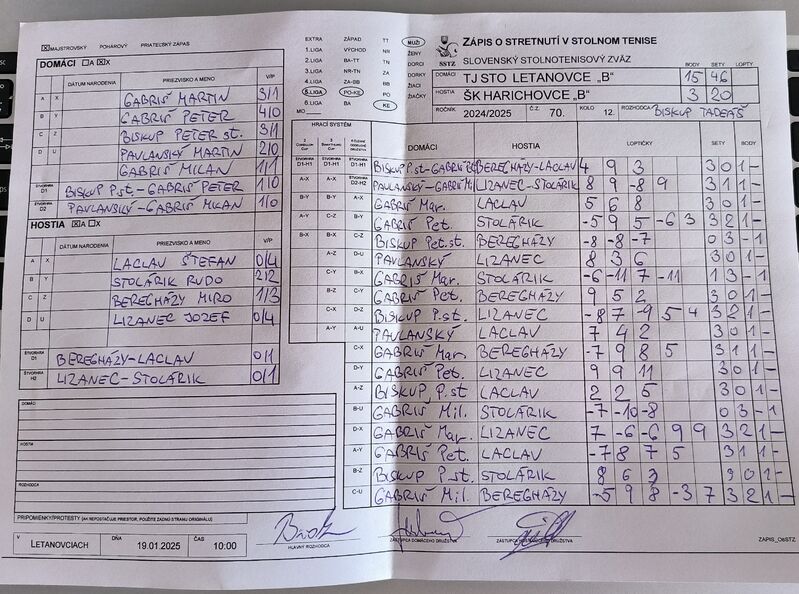 MAJSTROVSKÝ POHÁROVÝ PRIATEĽSKÝ ZÁPAS
DOMÁCI A X
DÁTUM NARODENIA PRIEZVISKO A MENO V/P
A X GABRIŠ MARTIN 3/1
B Y GABRIŠ PETER 4/0
C Z BISKUP PETER st. 3/1
D U PAVLANSKÝ MARTIN 2/0
GABRIŠ MILAN 1/1
ŠTVORHRA D1 BISKUP P.st-GABRIŠ PETER 1/0
ŠTVORHRA D2 PAVLANSKÝ-GABRIŠ MILAN 1/0
HOSTIA A X
DÁTUM NARODENIA PRIEZVISKO A MENO V/P
A X LACLAV ŠTEFAN 0/4
B Y STOLÁRIK RUDO 2/2
C Z BEREGHÁZY MIRO 1/3
D U LIZANEC JOZEF 0/4
ŠTVORHRA BEREGHÁZY-LACLAV 0/1
ŠTVORHRA H2 LIZANEC-STOLÁRIK 0/1
DOMÁCI
HOSTIA
ROZHODCA
PRIPOMIENKY/PROTESTY (AK NEPOSTAČUJE PRIESTOR, POUŽITE ZADNÚ STRANU ORIGINÁLU)
V LETANOVCIACH DŇA 19.01.2025 ČAS 10:00
HLAVNÝ ROZHODCA
ZÁSTUPCA DOMÁCEHO DRUŽSTVA
ZÁPIS_ObSTZ
EXTRA ZÁPAD TT MUŽI
1.LIGA VÝCHOD NR ŽENY
2.LIGA BA-TT TN DORCI
3.LIGA NR-TN ZA DORKY
4.LIGA ZA-BB BB ŽIACI
5.LIGA PO-KE PO ŽIAČKY
6.LIGA BA KE
MO
SSTZ
ZÁPIS O STRETNUTÍ V STOLNOM TENISE
SLOVENSKÝ STOLNOTENISOVÝ ZVÄZ
BODY SETY LOPTY
DOMÁCI TJ STO LETANOVCE „B" 15 46
HOSTIA ŠK HARICHOVCE „B" 3 20
ROČNÍK 2024/2025 Č.Z. 70. KOLO 12. ROZHODCA BISKUP TADEÁŠ
HRACÍ SYSTÉM
DOMÁCI HOSTIA LOPTIČKY SETY BODY
D1-H1 D1-H1 D1-H1 BISKUP P.st-GABRIŠ BEREGHÁZY-LACLAV 4 9 3 3 0 1 -
A-X A-X D2-H2 PAVLANSKÝ-GABRIŠ LIZANEC-STOLÁRIK 8 9 -8 9 3 1 1 -
B-Y B-Y A-X GABRIŠ Mar. LACLAV 5 6 8 3 0 1 -
A-Y C-Z B-Y GABRIŠ Pet. STOLÁRIK -5 9 5 -6 3 3 2 1 -
B-X B-X C-Z BISKUP Pet.st. BEREGHÁZY -8 -8 -7 0 3 - 1
A-Z D-U PAVLANSKÝ LIZANEC 8 3 6 3 0 1 -
C-Y B-X GABRIŠ Mar. STOLÁRIK -6 -11 7 -11 1 3 - 1
B-Z C-Y GABRIŠ Pet. BEREGHÁZY 9 5 2 3 0 1 -
C-X D-Z BISKUP P.st. LIZANEC -8 7 -9 5 4 3 2 1 -
A-Y A-U PAVLANSKÝ LACLAV 7 4 2 3 0 1 -
C-X GABRIŠ Mar. BEREGHÁZY -7 9 8 5 3 1 1 -
D-Y GABRIŠ Pet. LIZANEC 9 9 11 3 0 1 -
A-Z BISKUP P.st LACLAV 2 2 5 3 0 1 -
B-U GABRIŠ Mil. STOLÁRIK -7 -10 -8 0 3 - 1
D-X GABRIŠ Mar. LIZANEC 7 -6 -6 9 9 3 2 1 -
A-Y GABRIŠ Pet. LACLAV -7 8 7 5 3 1 1 -
B-Z BISKUP P.st. STOLÁRIK 8 6 3 3 0 1 -
C-U GABRIŠ Mil. BEREGHÁZY -5 9 8 -3 7 3 2 1 -